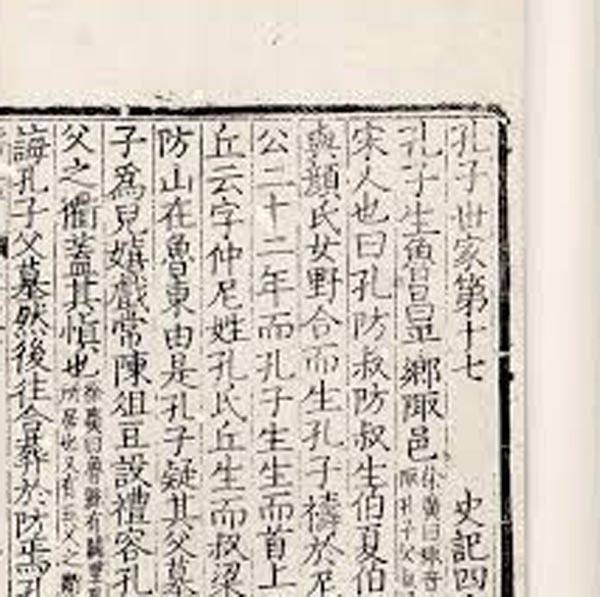 孔子世家第十七 史記四
孔子生魯昌平鄉陬邑徐廣曰陬音
宋人也曰孔防叔防叔生伯夏伯
與顏氏女野合而生孔子禱於尼
公二十二年而孔子生生而首上
丘云字仲尼姓孔氏丘生而叔梁
防山在魯東由是孔子疑其父墓
子爲兒嬉戲常陳俎豆設禮容孔
父之衢蓋其慎也徐廣曰魯縣有
誨孔子父墓然後往合葬於防焉孔